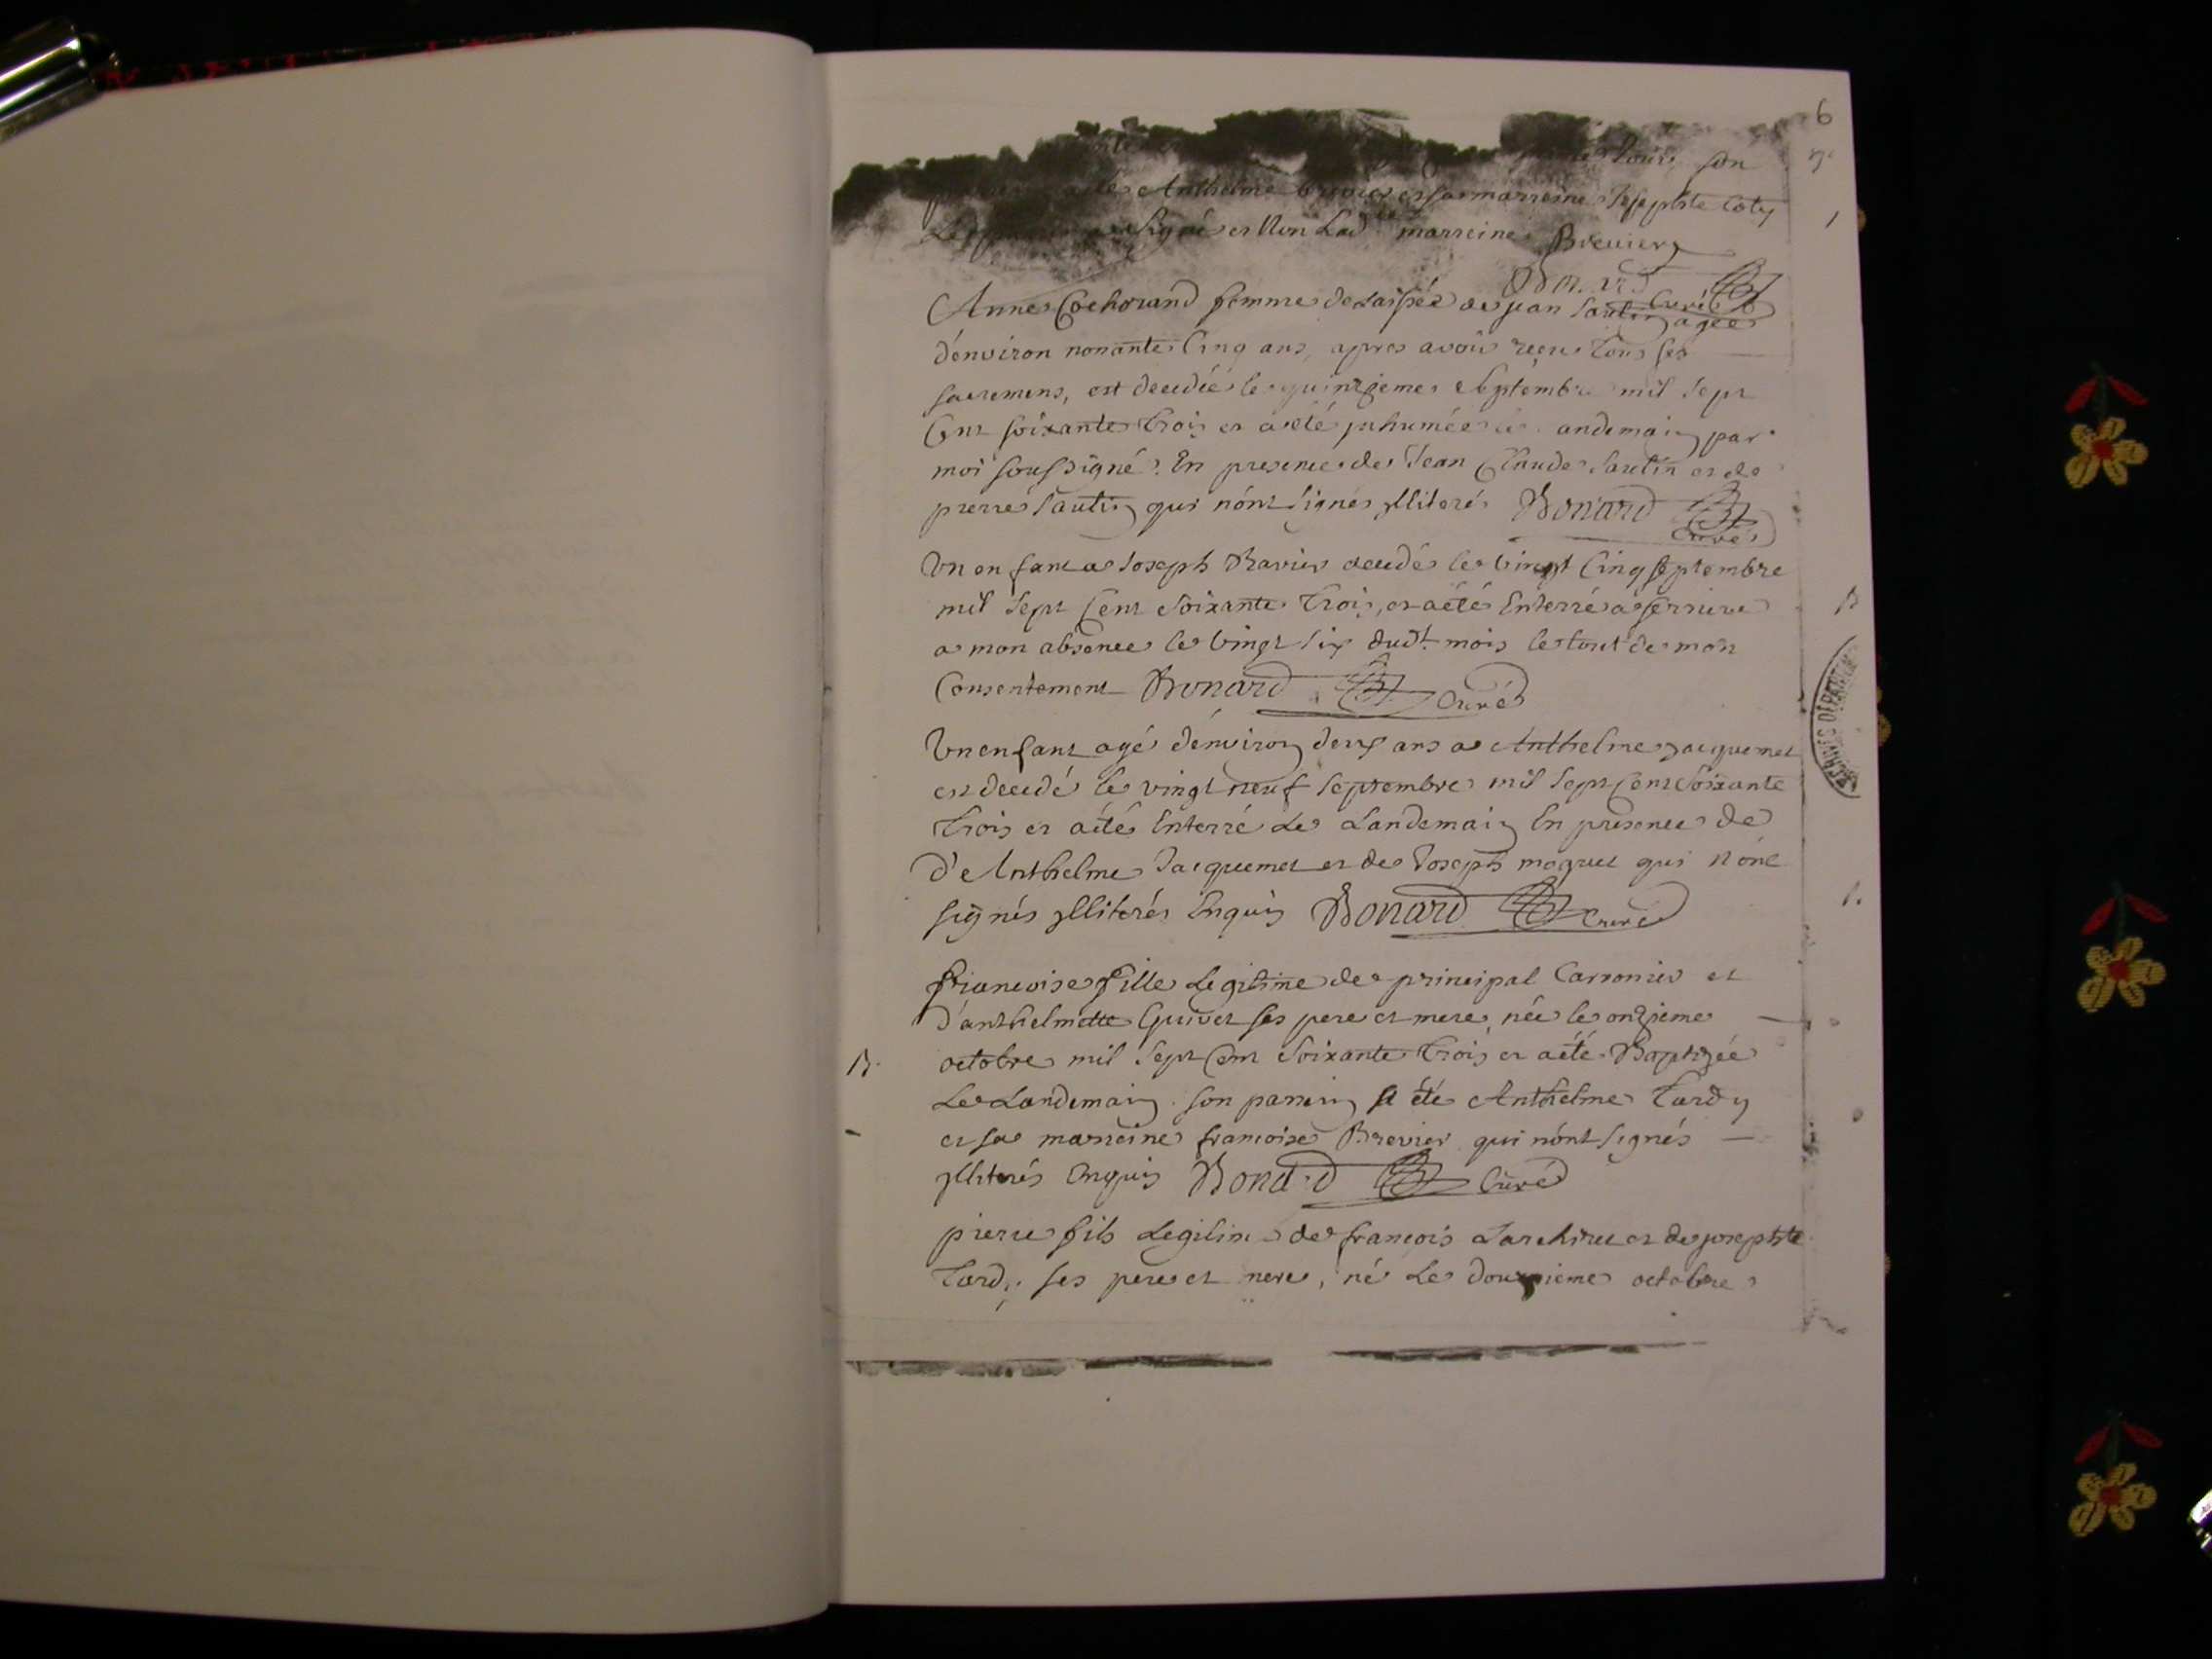 6
son
Anthelme brevier et sa marreine Josephte Coty
signé et Non Lad marreine Brevier
Bonard Curé
Anne Cochorand femme delaissée de jean Sautin agée
d'environ nonante Cinq ans, apres avoir reçeu tous ses
sacremens, est decedée le quinzieme septembre mil sept
Cent soixante trois et a eté jnhumée le andemain par
moi soussigné. En presence de Jean Claude Sautin et de
pierre Sautin qui n'ont signés jlliterés Bonard
Curé
Un enfant a Joseph Ravier decedé le vingt Cinq septembre
mil sept Cent soixante trois, et a eté Enterré a
a mon absence le vingt six dudt mois le tout de mon
Consentement Bonard Curé
Un enfant agé d'environ deux ans a Anthelme jacquemet
est decedé le vingt neuf septembre mil sept Cent soixante
trois et a eté Enterré Le Landemain En presence de
d'Anthelme Jacquemet et de Joseph moquet qui n'ont
signés jlliterés Enquis Bonard Curé
francoise fille Legitime de principal Carronier et
d'anthelmette Guivet ses pere et mere, née le onzieme
B. octobre mil sept Cent soixante trois et a eté Baptizée
Le Landemain. son parrein a eté Anthelme Tardy
et sa marreine francoise Brevier qui n'ont signés
jlliterés Enquis Bonard Curé
pierre fils Legitime de francois Larchiret et de josephte
Tardy ses pere et mere, né Le douzieme octobre